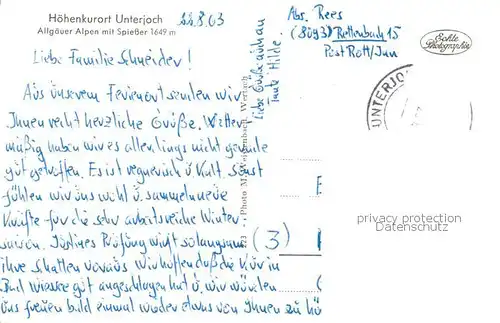 Höhenkurort Unterjoch
Allgäuer Alpen mit Spießer 1649 m
22.8.63
Liebe Familie Schneider!
Aus unserem Ferienort senden wir
Ihnen recht herzliche Grüße. Wetter-
mäßig haben wir es allerdings nicht gerade
gut getroffen. Es ist regnerisch u. kalt. Sonst
fühlen wir uns wohl u. sammeln neue
Kräfte für die sehr arbeitsreiche Winter-
saison. Prüfung wirft solangsam
ihre Schatten voraus. Wir hoffen daß die Kur in
Bad Wiessee gut angeschlagen hat u. wir würden
uns freuen bald einmal wieder etwas von Ihnen zu hö
Liebe Grüße auch an
Tante Hilde.
Photo M. Weißenbach, Wertach
Abs. Rees
(8093) Rettenbach 15
Post Rott/Inn
Echte
Photographie
UNTERJO
(3)
privacy protection
Datenschutz